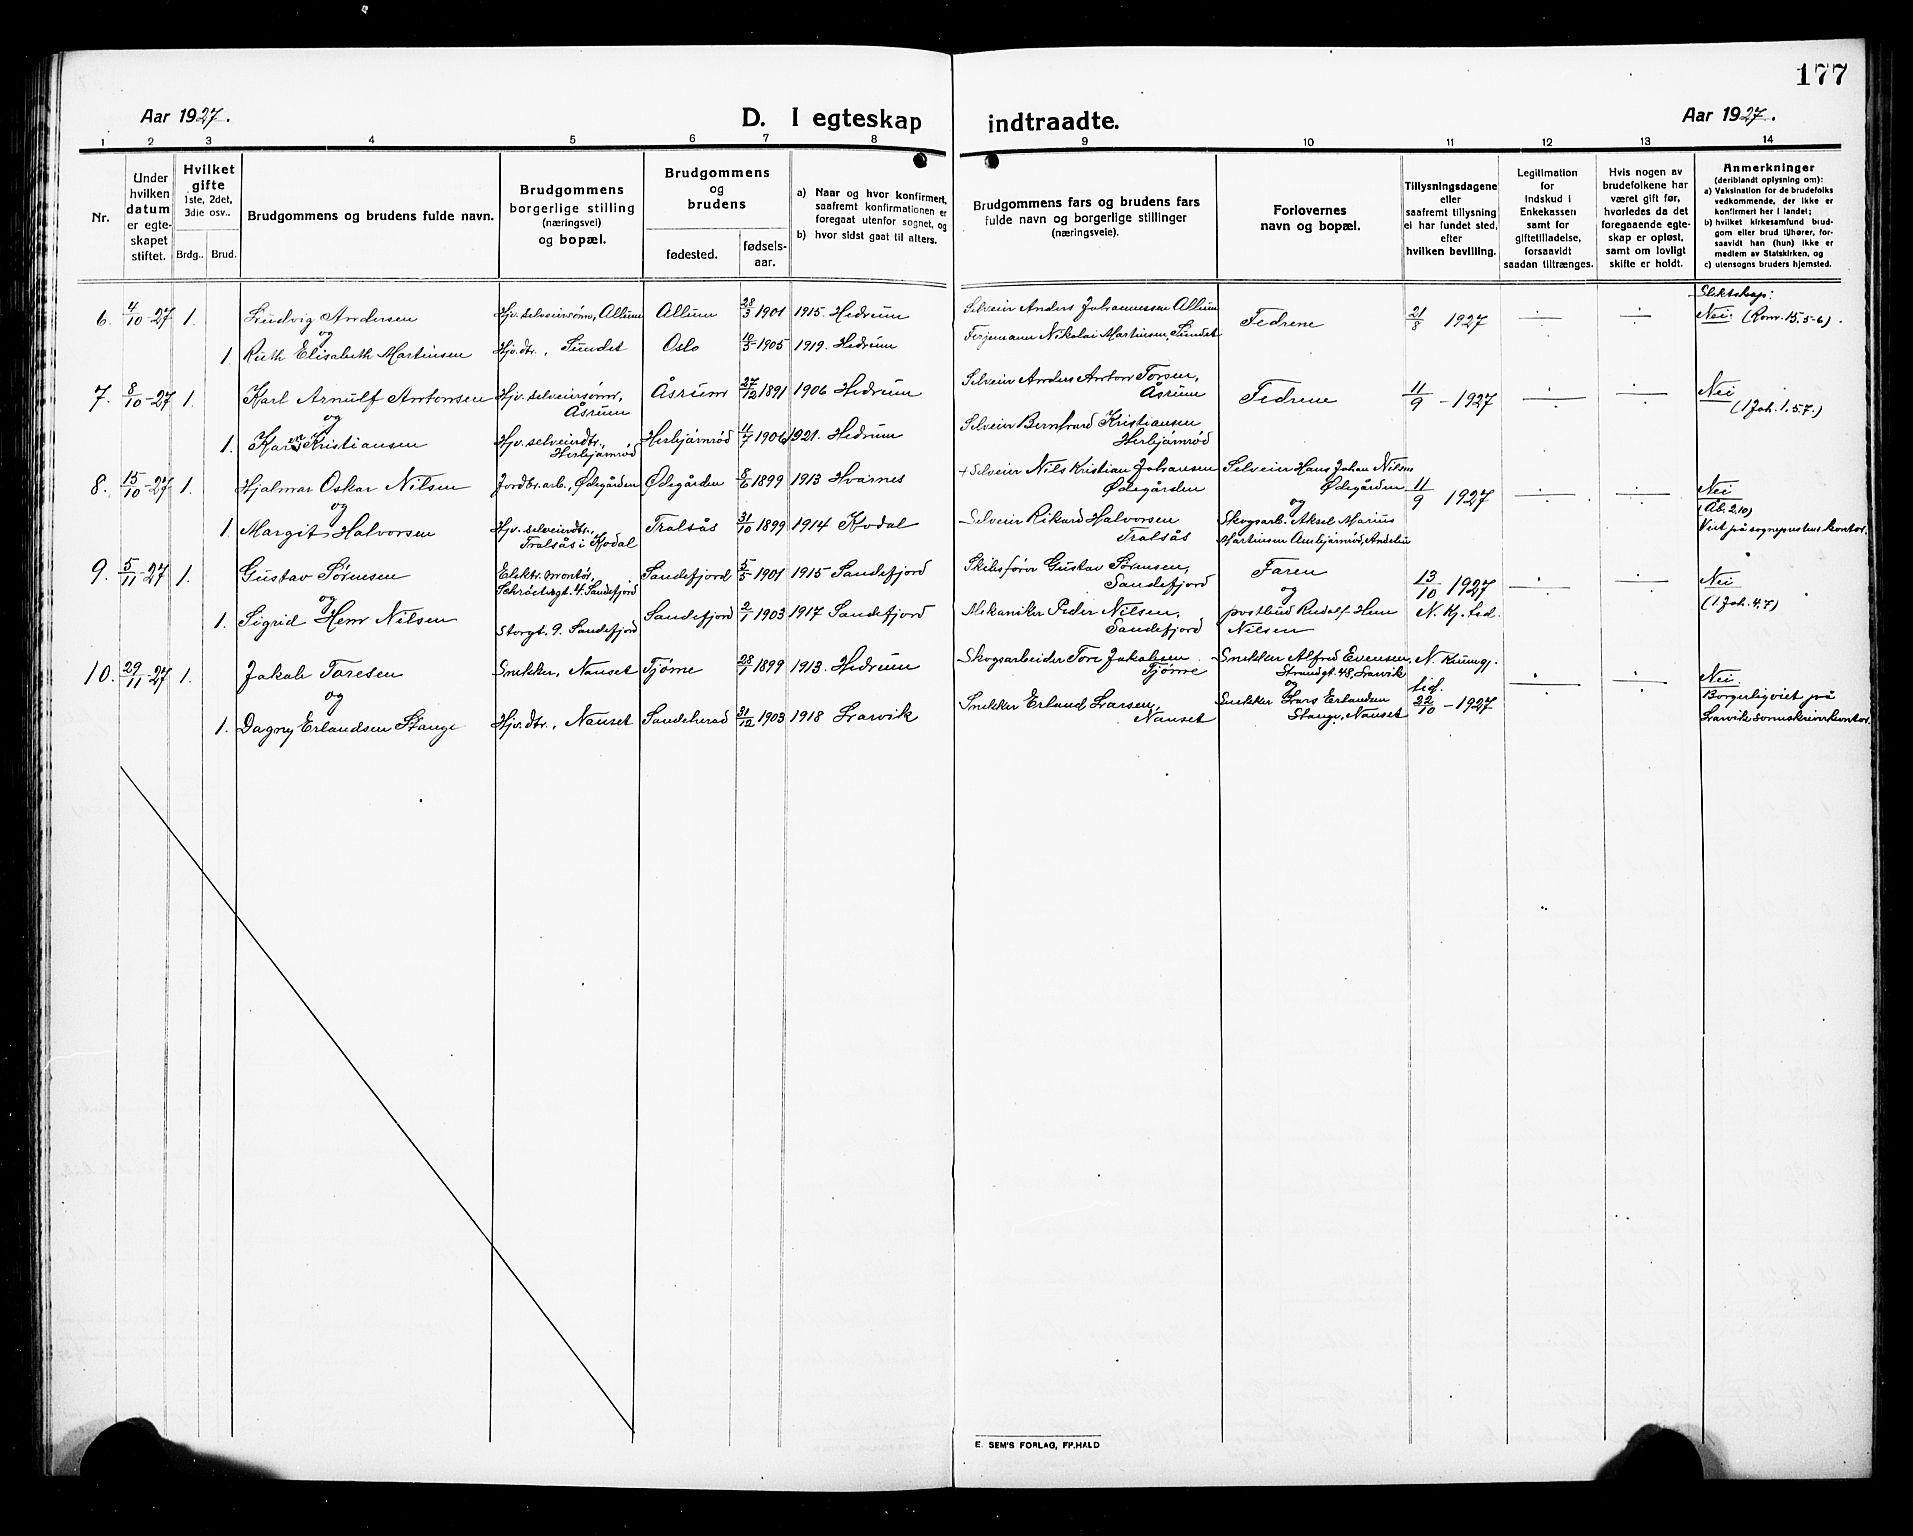 177
Aar 1927.
D. I egteskap indtraadte.
Aar 1927.
1 2 3 4 5 6 7 8 9 10 11 12 13 14
Nr.
Under hvilken datum er egteskapet stiftet.
Hvilket gifte 1ste, 2det, 3die osv..
Brdg.. Brud.
Brudgommens og brudens fulde navn.
Brudgommens borgerlige stilling (næringsvei) og bopæl.
Brudgommens og brudens
fødested.
fødselsaar.
a) Naar og hvor konfirmert, saafremt konfirmationen er foregaat utenfor sognet, og
b) hvor sidst gaat til alters.
Brudgommens fars og brudens fars fulde navn og borgerlige stillinger (næringsveie).
Forlovernes navn og bopæl.
Tillysningsdagene eller saafremt tillysning ei har fundet sted, efter hvilken bevilling.
Legitimation for Indskud i Enkekassen samt for giftetilladelse, forsaavidt saadan tiltrænges.
Hvis nogen av brudefolkene har været gift før, hvorledes da det foregaaende egteskap er opløst, samt om lovligt skifte er holdt.
Anmerkninger (deriblandt oplysning om):
a) Vaksination for de brudefolks vedkommende, der ikke er konfirmert her i landet;
b) hvilket kirkesamfund brudgom eller brud tilhører, forsaavidt han (hun) ikke er medlem av Statskirken, og
c) utensogns bruders hjemsted.
6. 4/10-27 1. Ludvig Andersen Hjv. selveiersønn, Allum Allum 28/3 1901 1915 Hedrum Selveier Anders Johannessen Allum Fedrene 21/8 1927 Slektskap: Nei. (Rom. 15.5-6).
og
1. Ruth Elisabeth Martinsen Hjv. dtr., Sundet Oslo 10/5-1905 1919 Hedrum Ferjemann Nikolai Martinsen, Sundet
7. 8/10-27 1. Karl Arnulf Antonsen Hjv. selveiersønn, Åsrum Åsrum 27/12 1891 1906 Hedrum Selveier Anders Anton Torsen, Åsrum Fedrene 11/9-1927 Nei (1 Joh. 1.5.7.)
og
1. Kristiansen Hjv. selveierdtr., Herbjørnrød Herbjørnrød 11/7 1906 1921. Hedrum Selveier Bernhard Kristiansen Herbjørnrød
8. 15/10-27 1. Hjalmar Oskar Nilsen Jordbr. arb., Ødegården Ødegården 8/6 1899 1913 Hvarnes + Selveier Nils Kristian Johansen Ødegården Selveier Hans Johan Nilsen Ødegården 11/9 1927 Nei (Åb. 2.10)
og og
1. Margit Halvorsen Hjv. selveierdtr., Trolsås i Kodal Trolsås 31/10 1899 1914 Kodal Selveier Rikard Halvorsen Trolsås Skogsarb. Aksel Marius Martinsen Andebu Viet på sogneprestens kontor.
9. 5/11-27 1. Gustav Sørensen Elektr. montør, Schrøtersgt. 4. Sandefjord Sandefjord 5/5 1901 1915 Sandefjord Skibsfører Gustav Sørensen, Sandefjord Faren 13/10 1927 Nei (1 Joh. 4.7)
og og
1. Sigrid Hem Nilsen Storgt. 9. Sandefjord Sandefjord 2/1 1903 1917 Sandefjord Mekaniker Peder Nilsen, Sandefjord postbud Rudolf Hem Nilsen N. Kj. tid.
10. 29/11-27 1. Jakob Toresen Snekker, Nanset Tjøme 28/1 1899 1913. Hedrum Skogsarbeider Tore Jakobsen Tjøme Snekker Alfred Evensen, Strandgt. 48, Larvik N. Kunngj. tid. Nei.
og og
1. Dagny Erlandsen Stange Hjv. dtr., Nanset Sandeherad 31/12 1903 1918 Larvik Snekker Erland Larsen, Nanset Snekker Lars Erlandsen Stange, Nanset 22/10-1927 Borgerlig viet på Larvik sorenskriverkontor.
E. SEM'S FORLAG, FR.HALD